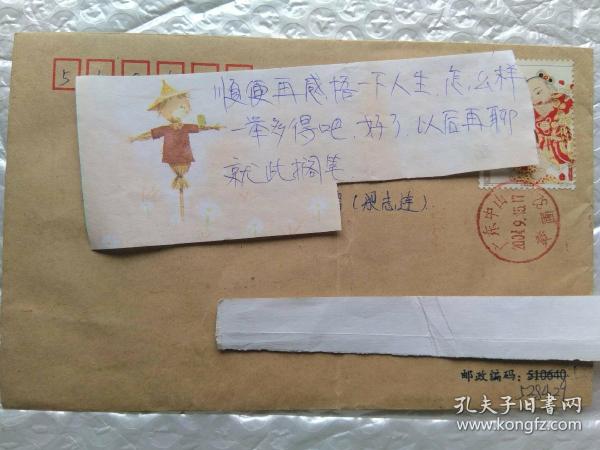 5
顺便再感悟一下人生,怎么样
一举多得吧.好了,以后再聊
就此搁笔
志连)
广东中山
2004.9.15.17
邮政编码:510640
528429
孔夫子旧书网
www.kongfz.com